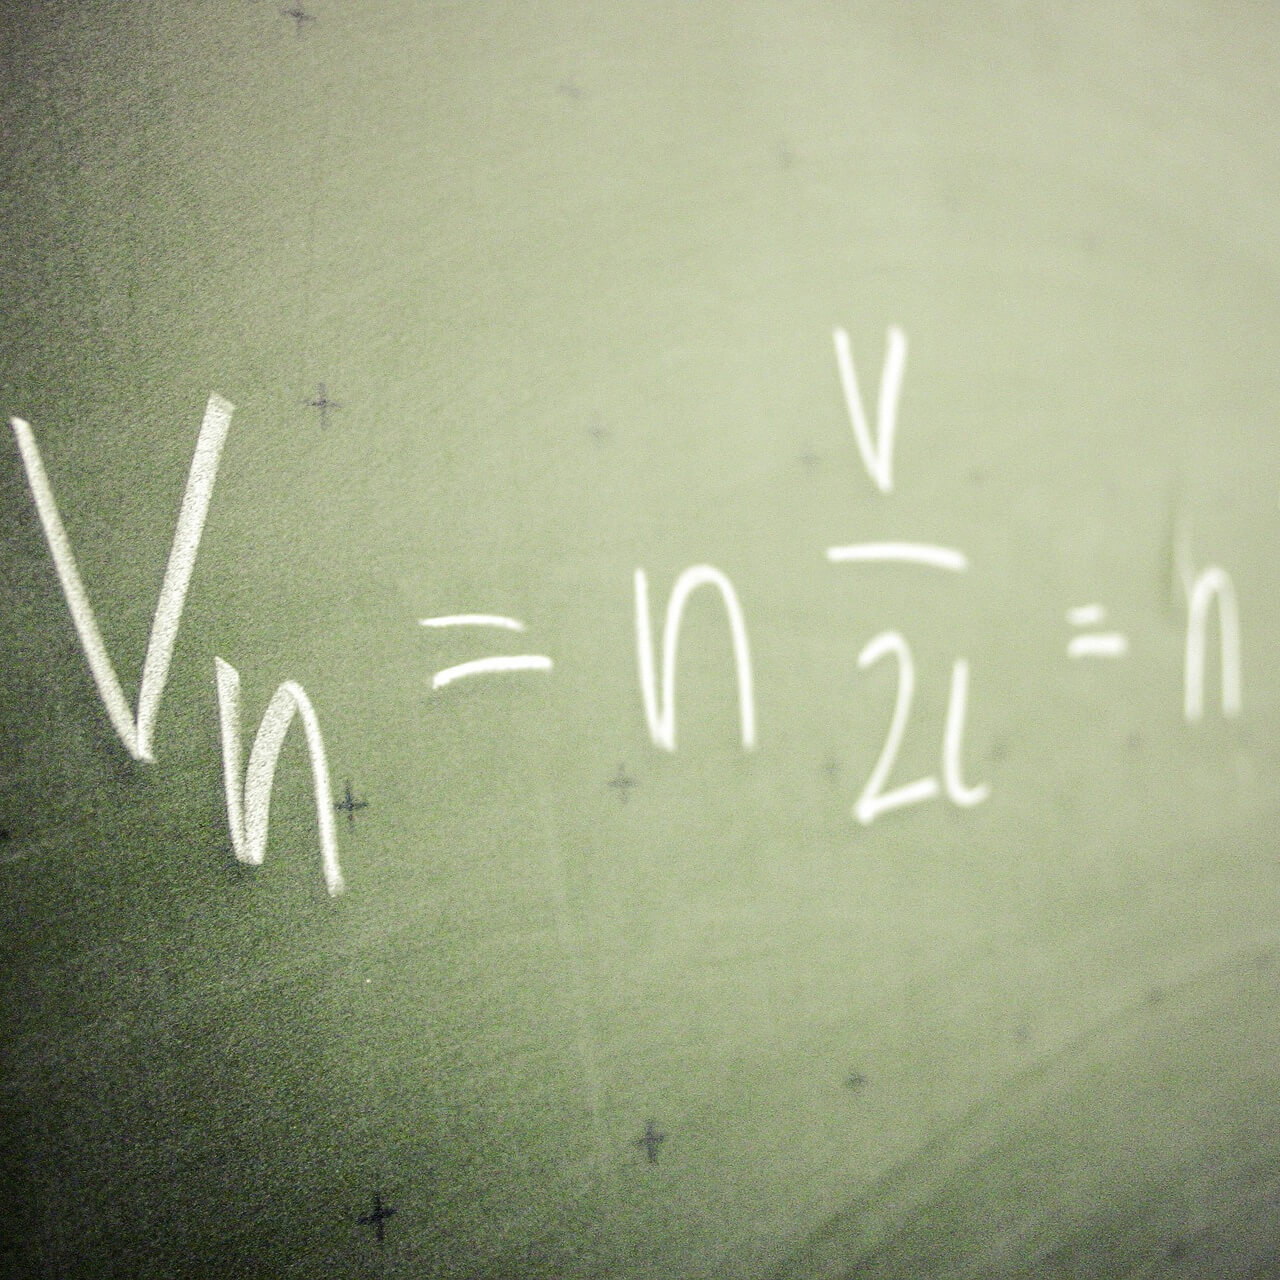 Vn = n v/2l = n